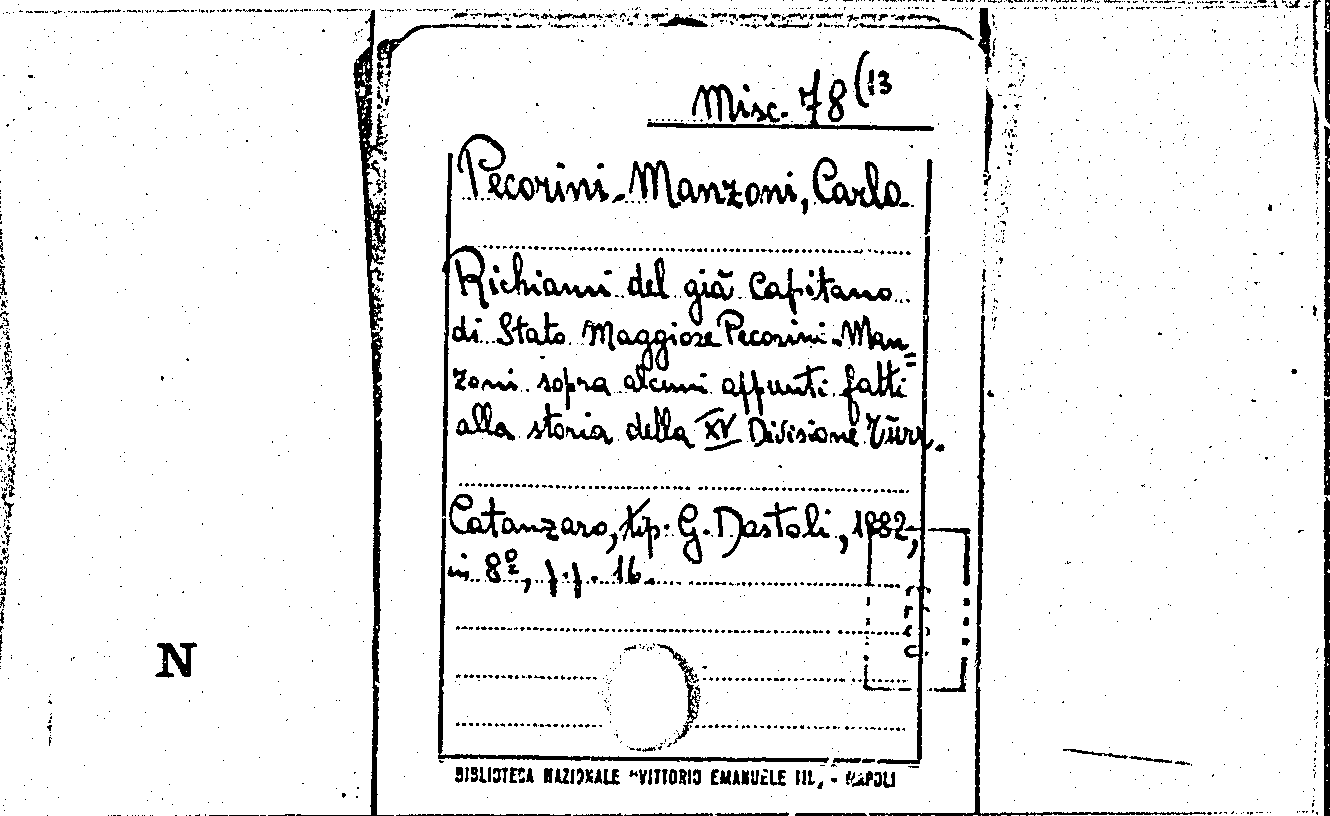 Misc. 78 (13
Pecorini-Manzoni, Carlo
Richiami del già Capitano
di Stato Maggiore Pecorini-Man=
zoni sopra alcuni appunti fatti
alla storia della XV Divisione Türr.
Catanzaro, tip. G. Dastoli, 1882,
in 8º, p.p. 16.
N
BIBLIOTECA NAZIONALE "VITTORIO EMANUELE III„ - NAPOLI